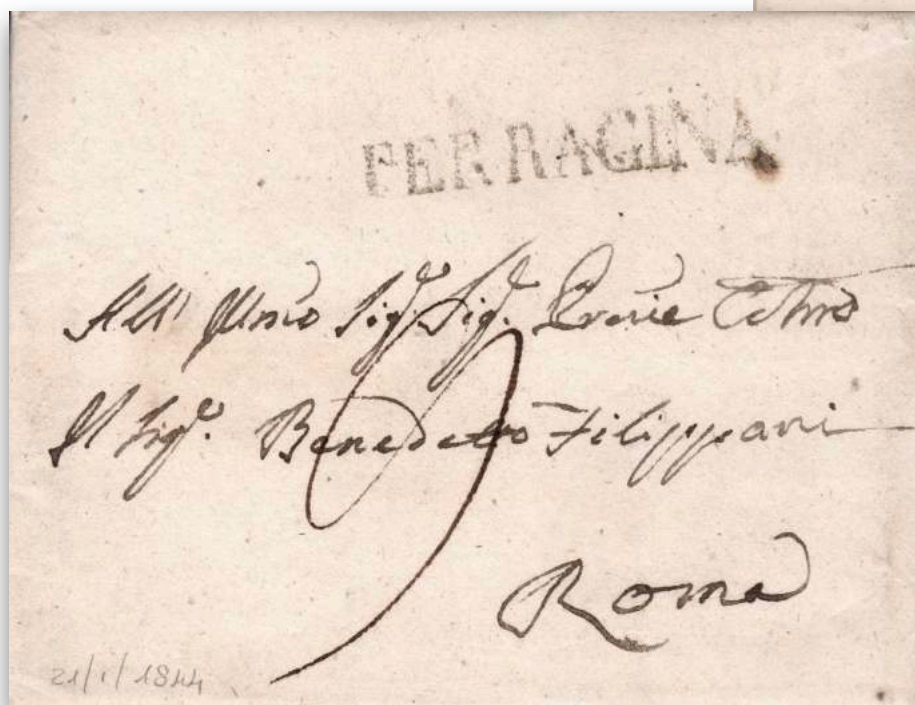 FERRAGINA
All' Illmo Sigr. Sigr. Prone Colmo
Il Sigr. Benedetto Filippani
9
Roma
21/1/1844